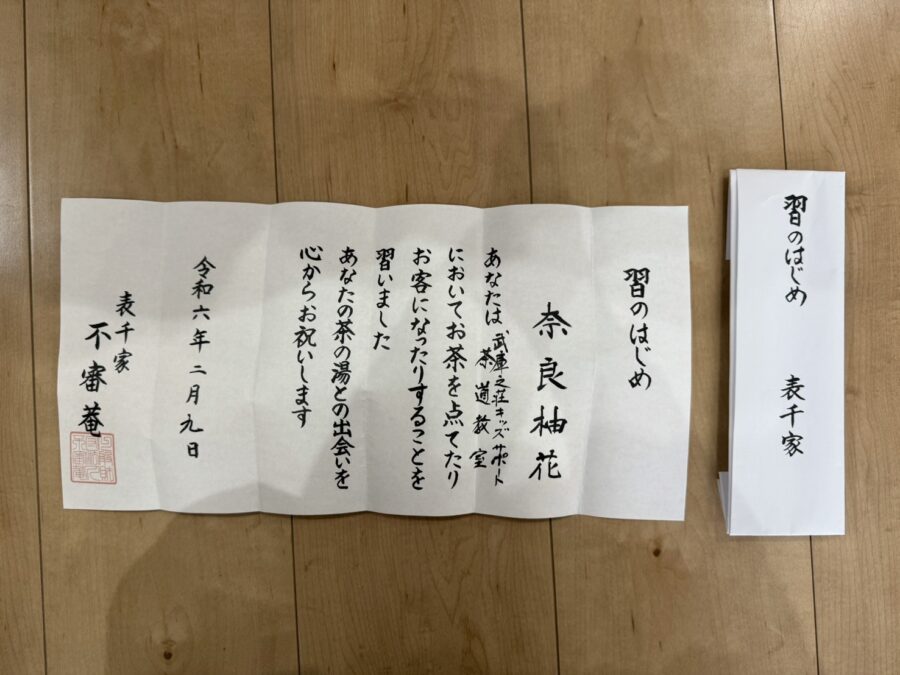 習のはじめ
奈良柚花
あなたは 武庫之荘キッズサポート
茶道教室
においてお茶を点てたり
お客になったりすることを
習いました
あなたの茶の湯との出会いを
心からお祝いします
令和六年二月九日
表千家
不審菴
習のはじめ 表千家